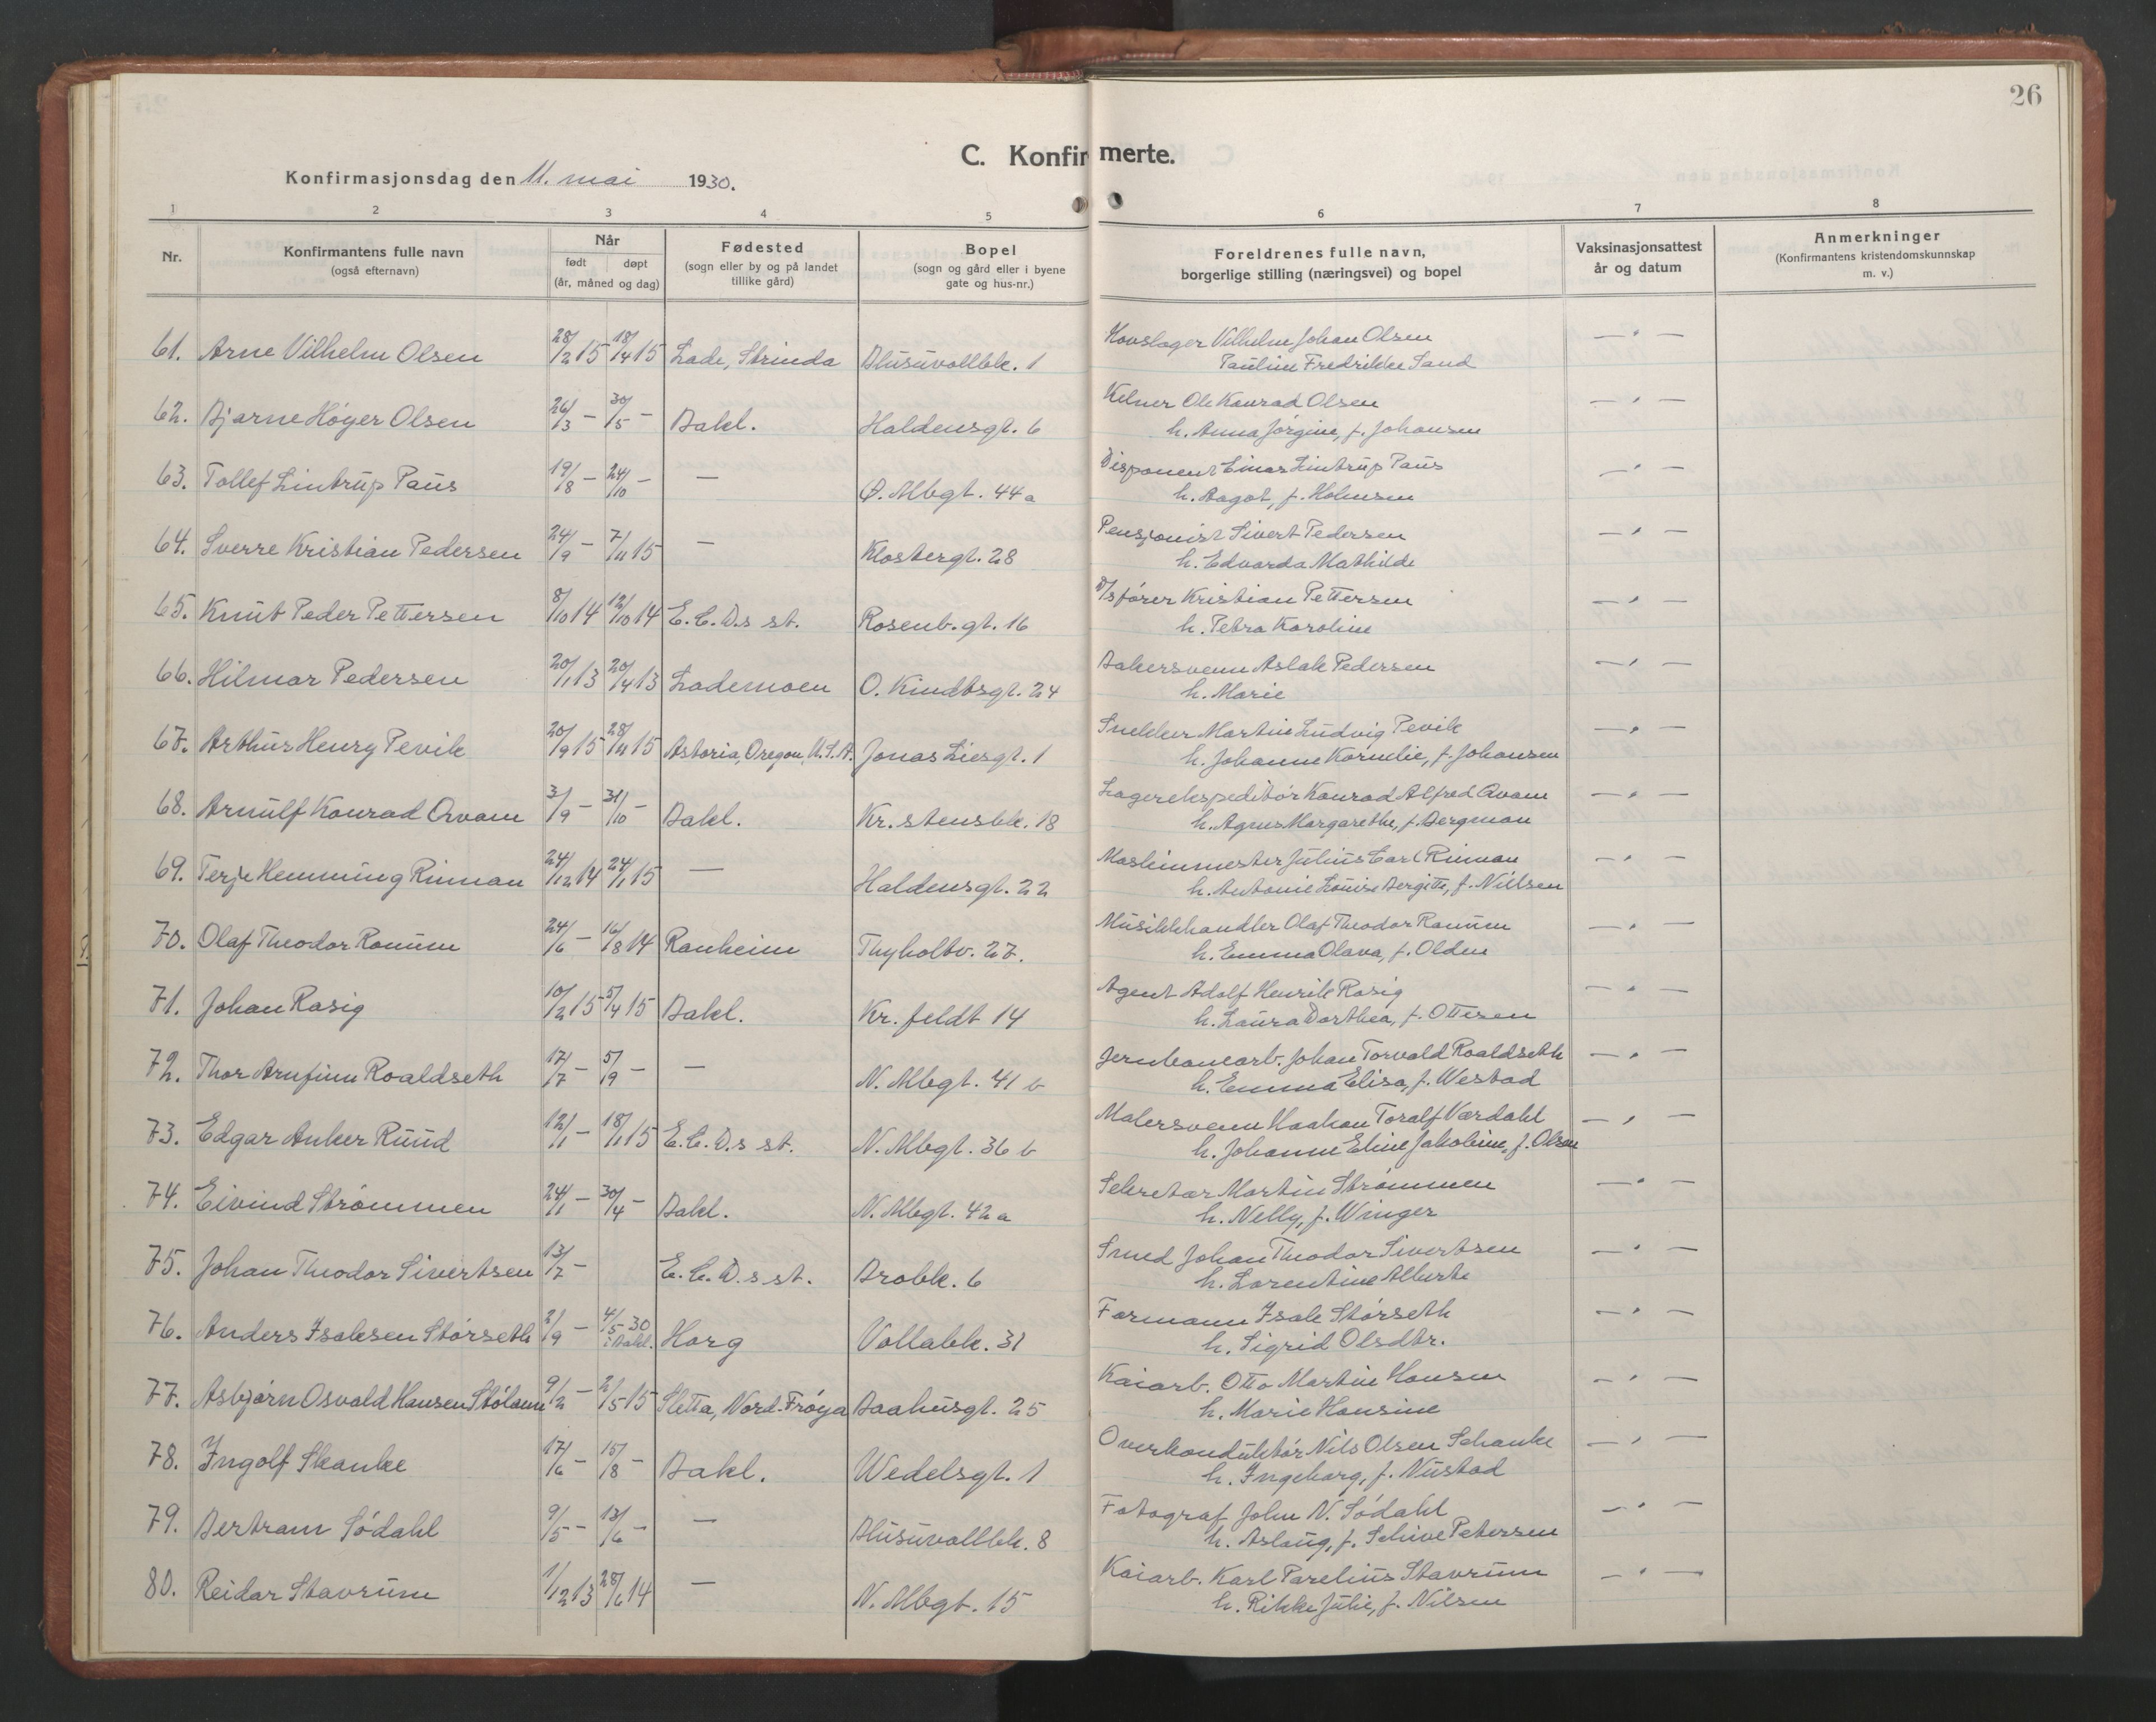 26
C. Konfirmerte.
Konfirmasjonsdag den 11. mai 1930.
1 2 3 4 5 6 7 8
Nr.
Konfirmantens fulle navn
(også efternavn)
Når
født døpt
(år, måned og dag)
Fødested
(sogn eller by og på landet
tillike gård)
Bopel
(sogn og gård eller i byene
gate og hus-nr.)
Foreldrenes fulle navn,
borgerlige stilling (næringsvei) og bopel
Vaksinasjonsattest
år og datum
Anmerkninger
(Konfirmantens kristendomskunnskap
m. v.)
61. Arne Vilhelm Olsen 28/2 15 18/4 15 Lade, Strinda Blusuvollbk. 1 Hovslager Vilhelm Johan Olsen — " —
Pauline Fredrikke Sand
62. Bjarne Høyer Olsen 26/3 – 30/5 – Bakl. Haldensgt. 6 Kelner Ole Konrad Olsen — " —
h. Anna Jørgine, f. Johansen
63. Tollef Lintrup Paus 19/8 – 24/10 – — Ø. Mbgt. 44a Disponent Einar Lintrup Paus — " —
h. Aagot, f. Holmsen
64. Sverre Kristian Pedersen 24/9 – 7/11 15 — Klostergt. 28 Pensjonist Sivert Pedersen — " —
h. Edvarda Mathilde
65. Knut Peder Pettersen 8/10 14 12/10 14 E.C.D.s st. Rosenb.gt. 16 D/sfører Kristian Pettersen — " —
h. Petra Karoline
66. Hilmar Pedersen 20/1 13 20/4 13 Lademoen O. Kindtsgt. 24 Bakersvenn Aslak Pedersen — " —
h. Marie
67. Arthur Henry Pevik 20/9 15 28/11 15 Astoria, Oregon, U.S.A. Jonas Liesgt. 1 Snekker Martin Ludvig Pevik — " —
h. Johanne Kornelie, f. Johansen
68. Arnulf Konrad Qvam 3/9 – 31/10 – Bakl. Kr.stensbk. 18 Lagerekspeditør Konrad Alfred Qvam — " —
h. Agnes Margarethe, f. Bergman
69. Terje Hemming Rinnan 24/12 14 24/1 15 — Haldensgt. 22 Maskinmester Julius Carl Rinnan — " —
h. Antonie Louise Bergitte, f. Nielsen
70. Olaf Theodor Ranum 24/6 – 16/8 14 Ranheim Thyholtv. 27. Musikkhandler Olaf Theodor Ranum — " —
h. Emma Olava, f. Olden
71. Johan Rasig 10/2 15 5/4 15 Bakl. Kr.feldt 14 Agent Adolf Henrik Rasig — " —
h. Laura Dorthea, f. Ottesen
72. Thor Arnfinn Roaldseth 17/7 – 5/9 – — N. Mbgt. 41 b Jernbanearb. Johan Torvald Roaldseth — " —
h. Emma Elisa, f. Westad
73. Edgar Anker Ruud 12/1 – 18/1 15 E.C.D.s st. N. Mbgt. 36 b Malersvenn Haakon Toralf Værdahl — " —
h. Johanne Eline Jakobine, f. Olsen
74. Eivind Strømmen 24/1 – 30/4 – Bakl. N. Mbgt. 42a Sekretær Martin Strømmen — " —
h. Nelly, f. Winger
75. Johan Theodor Sivertsen 13/7 – E.C.D.s st. Brobk. 6 Smed Johan Theodor Sivertsen — " —
h. Lorentine Alberte
76. Anders Isaksen Størseth 2/9 – 4/5 30 i Bakl. Horg Vollabk. 31 Formann Isak Størseth — " —
h. Sigrid Olsdtr.
77. Asbjørn Osvald Hansen Stølann 9/2 – 2/5 15 Sletta, Nord-Frøya Baahusgt. 25 Kaiarb. Otto Martin Hansen — " —
h. Marie Hansine
78. Ingolf Skanke 17/6 – 15/8 – Bakl. Wedelsgt. 1 Overkonduktør Nils Olsen Schanke — " —
h. Ingeborg, f. Nustad
79. Bertram Sødahl 9/5 – 13/6 – — Blusuvollbk. 8 Fotograf John N. Sødahl — " —
h. Aslaug, f. Schive Petersen
80. Reidar Stavrum 1/12 13 28/6 14 — N. Mbgt. 15 Kaiarb. Karl Parelius Stavrum — " —
h. Rikke Julie, f. Nilsen